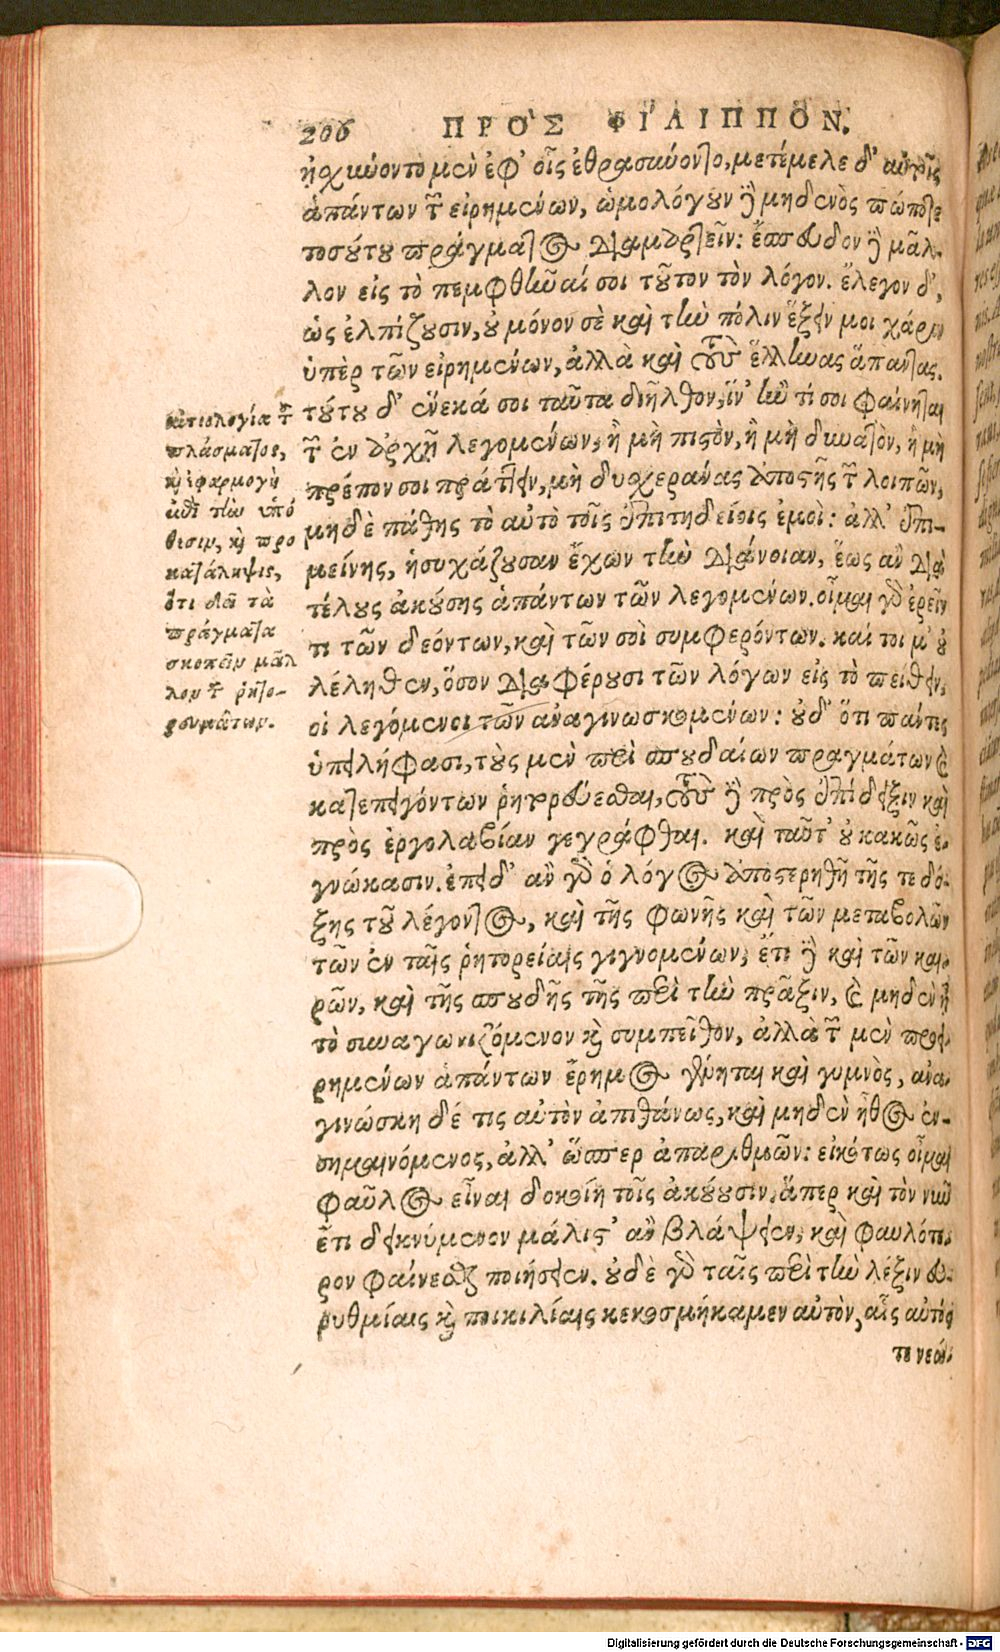 206 ΠΡΟ῍Σ ΦΙ΄ΛΙΠΠΟΝ.
ᾐσχύνοντο μὲν ἐφ' οἷς ἐθρασύνοντο, μετέμελε δ' αὐτοῖς
ἁπάντων τῶν εἰρημένων, ὡμολόγουν δὲ μηδενὸς πώποτε
τοσούτου πράγματος διαμαρτεῖν: ἔσπευδον δὲ μᾶλ-
λον εἰς τὸ πεμφθῆναί σοι τοῦτον τὸν λόγον. ἔλεγον δ',
ὡς ἐλπίζουσιν, οὐ μόνον σὲ καὶ τὴν πόλιν ἕξειν μοι χάριν
ὑπὲρ τῶν εἰρημένων, ἀλλὰ καὶ τοὺς ἕλληνας ἅπαντας.
τούτου δ' ἕνεκά σοι ταῦτα διῆλθον, ἵν' ἤν τί σοι φαίνηται
τῶν ἐν ἀρχῇ λεγομένων, ἢ μὴ πιστὸν, ἢ μὴ δυνατὸν, ἢ μὴ
πρέπον σοι πράττειν, μὴ δυσχεράνας ἀποστῇς τῶν λοιπῶν,
μηδὲ πάθῃς τὸ αὐτὸ τοῖς ἐπιτηδείοις ἐμοῖ: ἀλλ' ἐπι-
μείνῃς, ἡσυχάζουσαν ἔχων τὴν διάνοιαν, ἕως ἂν διὰ
τέλους ἀκούσῃς ἁπάντων τῶν λεγομένων. οἶμαι γὰρ ἐρεῖν
τι τῶν δεόντων, καὶ τῶν σοὶ συμφερόντων. καί τοι μ' οὐ
λέληθεν, ὅσον διαφέρουσι τῶν λόγων εἰς τὸ πείθειν,
οἱ λεγόμενοι τῶν ἀναγινωσκομένων: οὐδ' ὅτι πάντες
ὑπειλήφασι, τοὺς μὲν περὶ σπουδαίων πραγμάτων καὶ
κατεπειγόντων ῥητορεύεσθαι, τοὺς δὲ πρὸς ἐπίδειξιν καὶ
πρὸς ἐργολαβίαν γεγράφθαι. καὶ ταῦτ' οὐ κακῶς ἐ-
γνώκασιν. ἐπειδ' ἂν γὰρ ὁ λόγος ἀποστερηθῇ τῆς τε δό-
ξης τοῦ λέγοντος, καὶ τῆς φωνῆς καὶ τῶν μεταβολῶν
τῶν ἐν ταῖς ῥητορείαις γιγνομένων, ἔτι δὲ καὶ τῶν και-
ρῶν, καὶ τῆς σπουδῆς τῆς περὶ τὴν πρᾶξιν, καὶ μηδὲν ᾖ
τὸ συναγωνιζόμενον καὶ συμπεῖθον, ἀλλὰ τῶν μὲν προει-
ρημένων ἁπάντων ἔρημος γένηται καὶ γυμνὸς, ἀνα-
γινώσκῃ δέ τις αὐτὸν ἀπιθάνως, καὶ μηδὲν ἦθος ἐν-
σημαινόμενος, ἀλλ' ὥσπερ ἀπαριθμῶν: εἰκότως οἶμαι
φαῦλος εἶναι δοκοίη τοῖς ἀκούουσιν, ἅπερ καὶ τὸν νῦν
ἔτι δεικνύμενον μάλιστ' ἂν βλάψειεν, καὶ φαυλότε-
ρον φαίνεσθαι ποιήσειεν. οὐδὲ γὰρ ταῖς περὶ τὴν λέξιν εὐ-
ρυθμίαις καὶ ποικιλίαις κεκοσμήκαμεν αὐτὸν, αἷς αὐτός
τε νεώ-
αἰτιολογία τοῦ
πλάσματος,
καὶ ἐφαρμογὴ
ἐπὶ τὴν ὑπό
θεσιν, καὶ προ
κατάληψις,
ὅτι δεῖ τὰ
πράγματα
σκοπεῖν μᾶλ
λον τῶν ῥητο-
ρευμάτων.
Digitalisierung gefördert durch die Deutsche Forschungsgemeinschaft - DFG